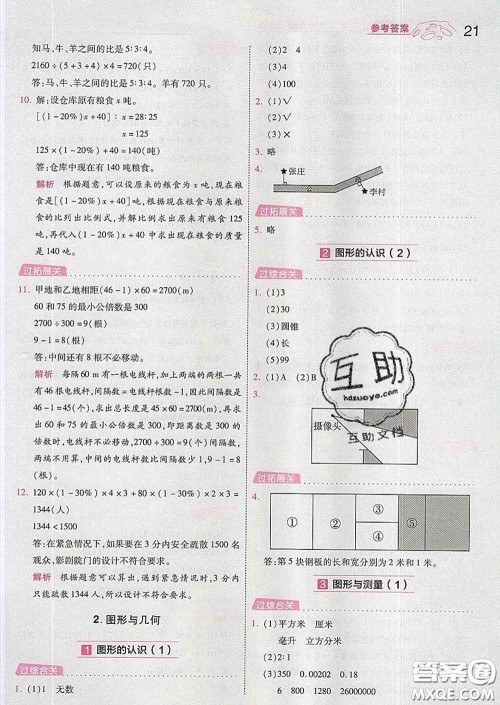 参考答案 21
知马、牛、羊之间的比是5∶3∶4。
2160÷(5+3+4)×4=720(只)
答:马、牛、羊之间的比是5∶3∶4。羊有720只。
10. 解:设仓库原有粮食x吨。
[(1-20%)x+40]∶x=28∶25
x=125
125×(1-20%)+40=140(吨)
答:仓库中现在有140吨粮食。
解析 根据题意,可以设原来的粮食为x吨,现在粮
食是[(1-20%)x+40]吨,根据现存粮食与原来粮
食的比列出比例式,并解比例求出原来有粮食125
吨,再代入(1-20%)x+40中求出现在存粮食的质
量是140吨。
过拓展关
11. 甲地和乙地相距(46-1)×60=2700(m)
60和75的最小公倍数是300
2700÷300=9(根)
9-1=8(根)
答:中间还有8根不必移动。
解析 每隔60m有一根电线杆,加上两端的两根一共
有46根电线杆,间隔数=电线杆根数-1,因此间隔数是
46-1=45(个),求出总长度是45×60=2700(m),再
求出60和75的最小公倍数是300,即距离是300的
倍数时,电线杆不必移动2700÷300=9(个)间隔数,
两端不用算,中间的根数比间隔数少1,9-1=8
(根)。
12. 120×(1-30%)×4×3+80×(1-30%)×2×3=
1344(人)
1344<1500
答:在紧急情况下,如果要在3分内安全疏散1500名
观众,影剧院门的设计不符合要求。
解析 根据题意可知,遇到紧急情况时,3分内只能
疏散1344人,所以门的设计不符合要求。
2. 图形与几何
1 图形的认识(1)
过综合关
1. (1)1 无数
(2)2 4
(3)4
(4)100
2. (1)√
(2)√
(3)×
3. 略
4.
张庄
公
路
李村
过拓展关
5. 略
2 图形的认识(2)
过综合关
1. (1)3
(2)30
(3)圆锥
(4)5
(5)99
2. (1)A (2)B
3.
摄像头
互助
hdzuoye.com
互助文档
过拓展关
4.
① ② ③ ④ ⑤
答:第5块钢板的长和宽分别为2米和1米。
3 图形与测量(1)
过综合关
1. (1)平方米 厘米
毫升 立方分米
(2)3 350 0.00202 0.18
6 800 1280 26000000
答案圈
MXQE.COM